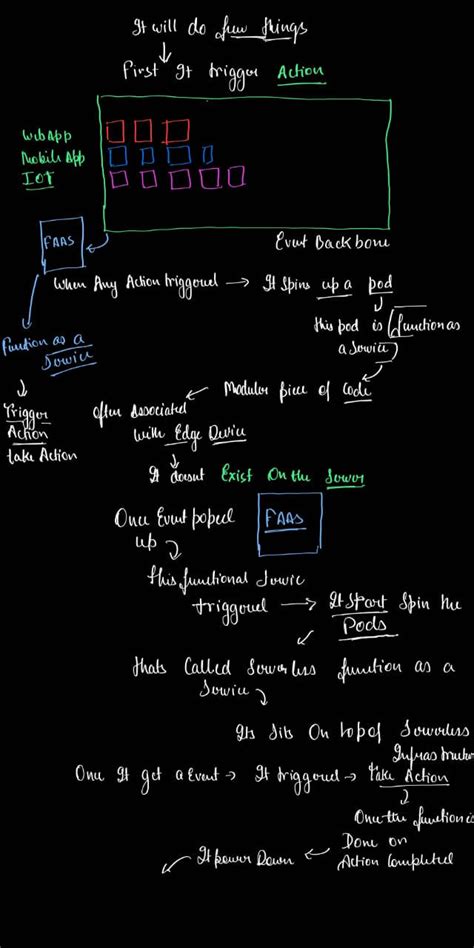 It will do few things
First It trigger Action
WebApp
Mobile App
IOT
FAAS
Event Backbone
When Any Action triggered → It Spins up a pod
this pod is (function as
a Service)
Function as a
Service
Modular piece of code
Trigger
Action
take Action
often associated
with Edge Device
It doesnt Exist On the Server
Once Event poped
up
FAAS
this functional Servic
triggered → It Start Spin the
Pods
thats Called Serverless function as a
Service
Its Sits On top of Serverless
Infrastructure
Once It get a Event → It triggered → take Action
Once the function is
Done on
Action Completed
It power Down